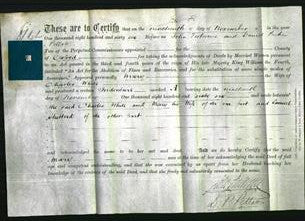 These are to Certify that on the nineteenth day of November in the year
One thousand eight hundred and sixty one before me John
Two of the Perpetual Commissioners appointed for the County
of Oxford for taking the acknowledgments of Deeds by Married Women pursuant
to an Act passed in the third and fourth years of the reign of His late Majesty King William the Fourth,
intituled "An Act for the Abolition of Fines and Recoveries, and for the substitution of more simple modes
of Assurance," Appeared personally Mary the Wife
of Charles White
and produced a certain Indenture marked A bearing date the nineteenth
day of November One thousand eight hundred and sixty one and made between
the said Charles White and Mary his Wife of the one part and
of the other part
and acknowledged the same to be her act and deed. And we do hereby Certify that the said
Mary was at the time of her acknowledging the said Deed of full
age and competent understanding, and that she was examined by us apart from her Husband touching her
knowledge of the contents of the said Deed, and that she freely and voluntarily consented to the same.